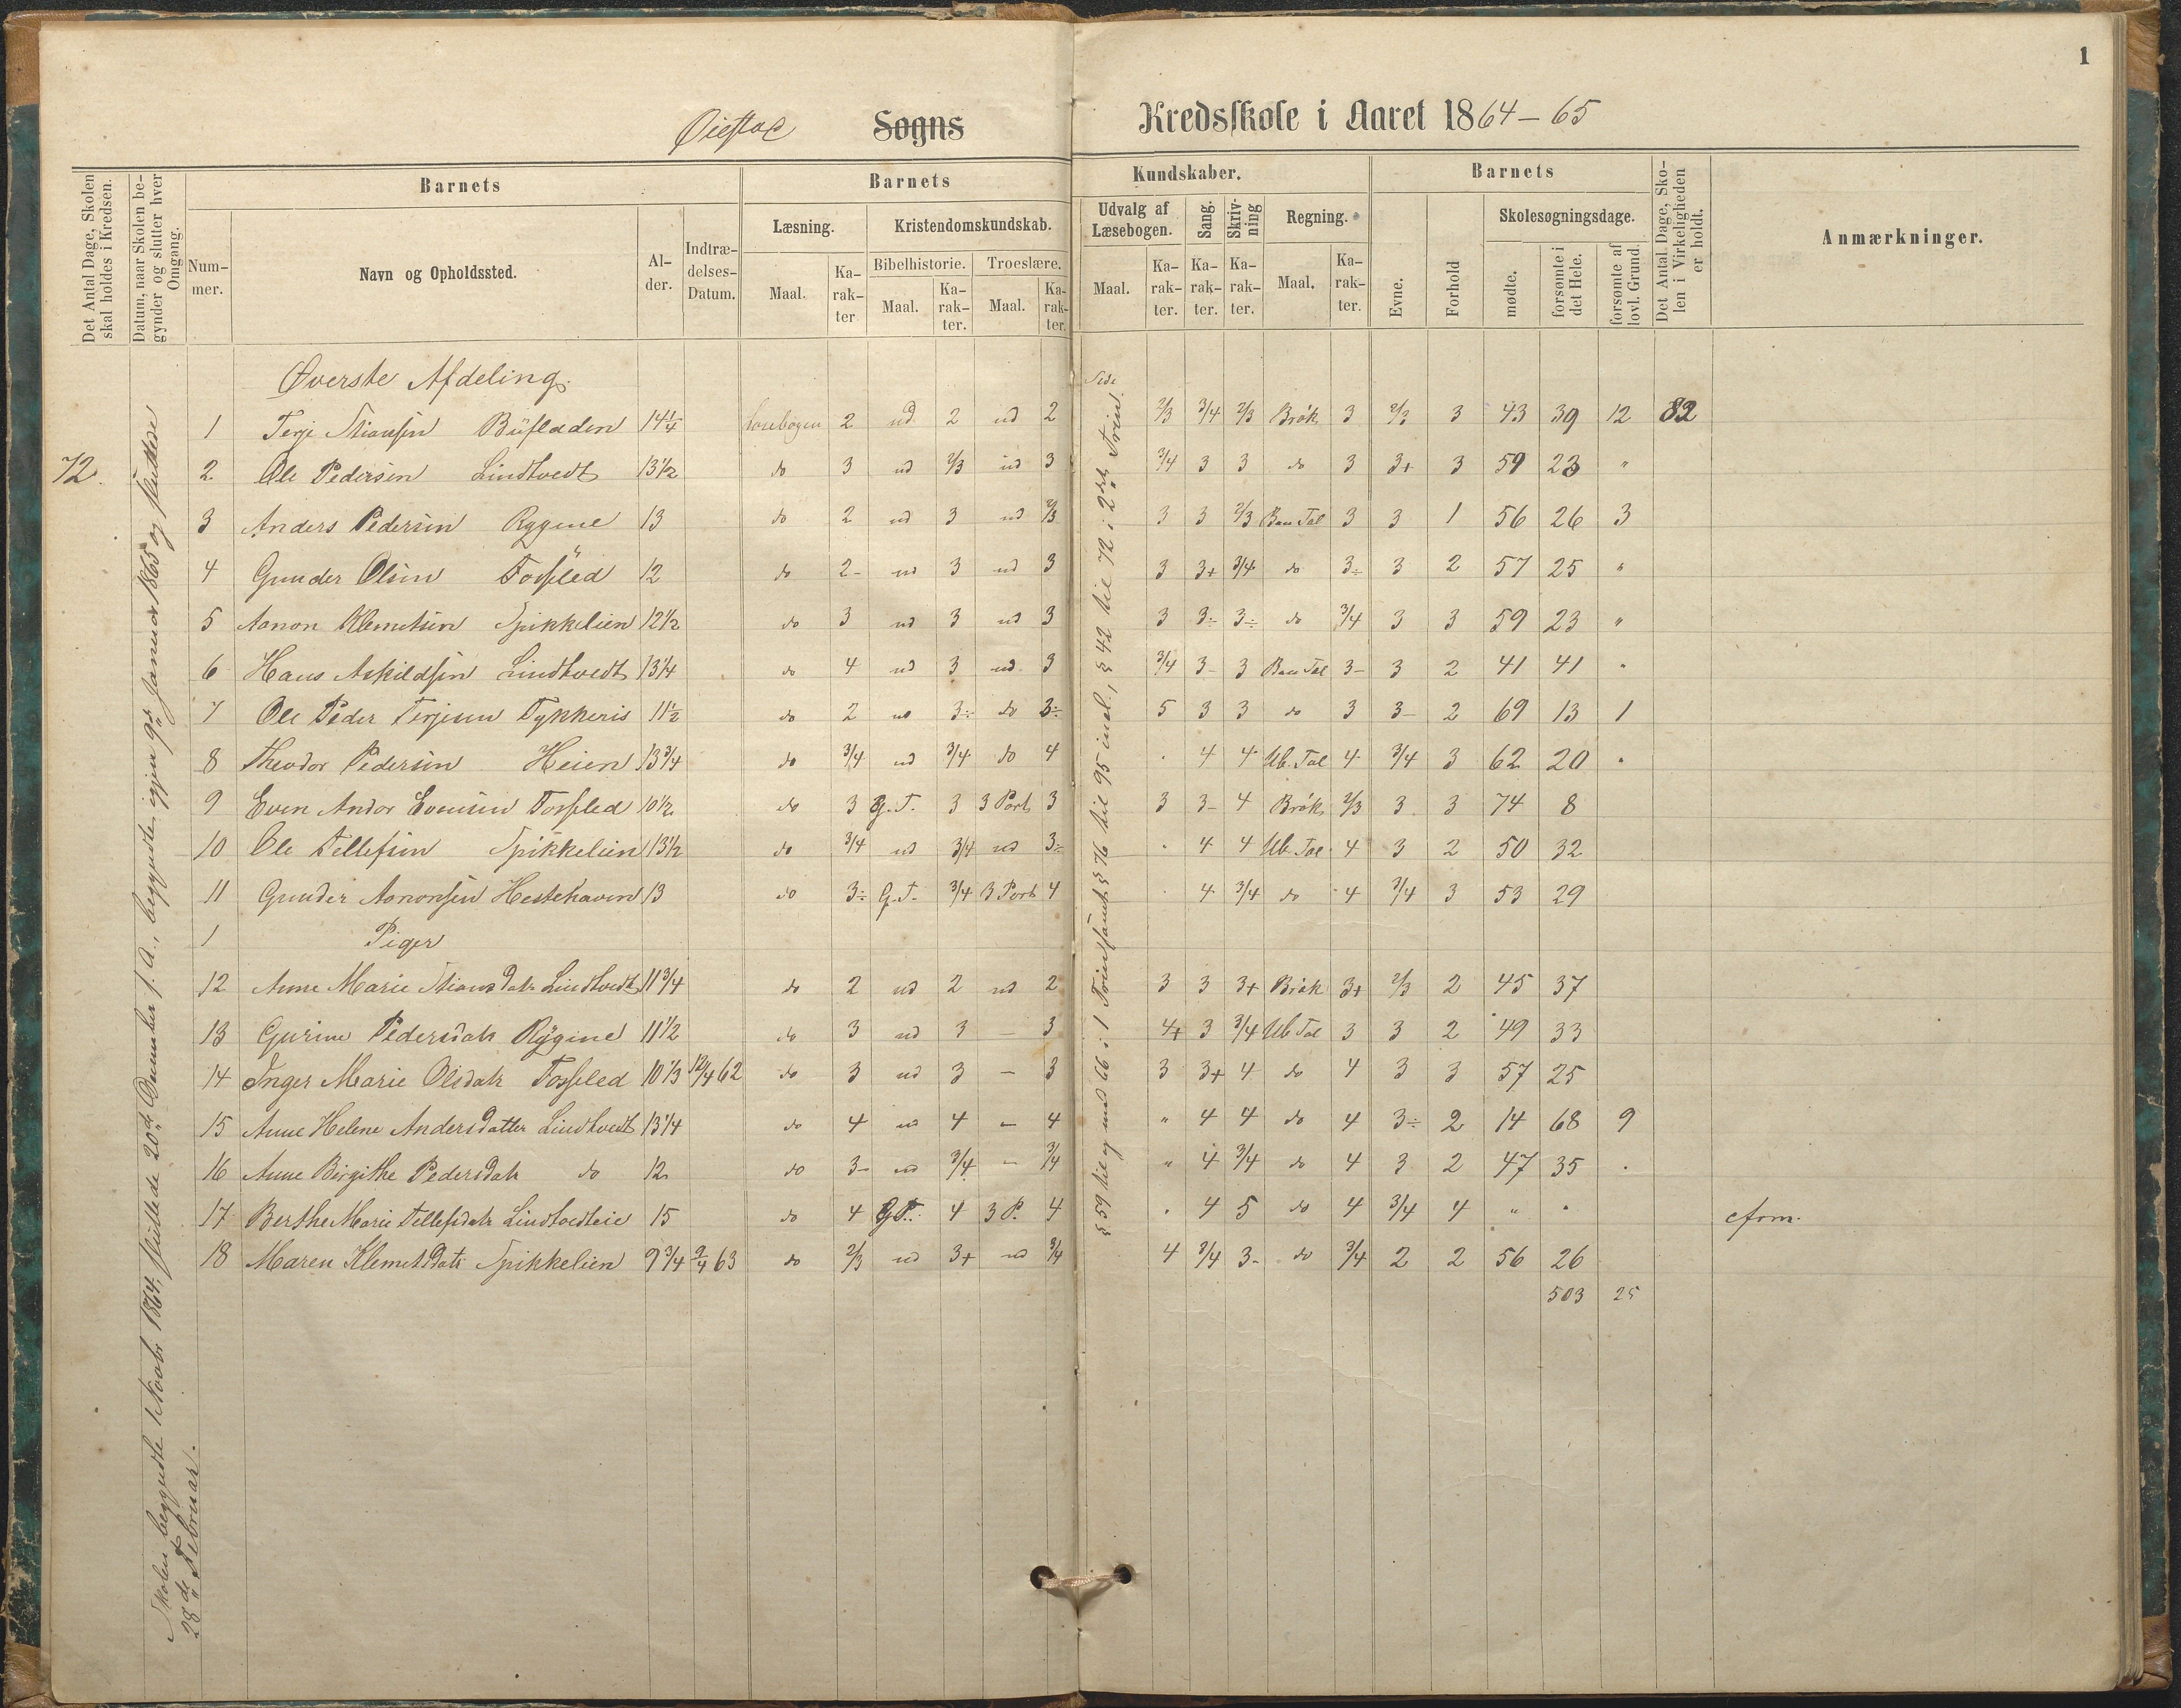 1
Øiestad Sogns Kredsskole i Aaret 1864-65
Det Antal Dage, Skolen skal holdes i Kredsen.
Datum, naar Skolen begynder og slutter hver Omgang.
Barnets
Nummer.
Navn og Opholdssted.
Alder.
Indtrædelses-Datum.
Barnets Kundskaber.
Læsning.
Maal.
Karakter
Kristendomskundskab.
Bibelhistorie.
Maal.
Karakter.
Troeslære.
Maal.
Karakter.
Udvalg af Læsebogen.
Maal.
Karakter.
Sang.
Karakter.
Skrivning
Karakter.
Regning.
Maal.
Karakter.
Barnets
Evne.
Forhold
Skolesøgningsdage.
mødte.
forsømte i det Hele.
forsømte af lovl. Grund.
Det Antal Dage, Skolen i Virkeligheden er holdt.
Anmærkninger.
72.
Skolen begyndte Oktobr 1864, sluttede 20de December s. A., begyndte igjen 9de Januar 1865 og sluttede
28de Februar.
Side
§ 59 til og med 66 i 1 Trin samt § 76 til 95 incl., § 42 til 72 i 2det Trin.
Øverste Afdeling.
1 Terje Stiansen Büfladen 14 1/4 Læsebogen 2 ud 2 ud 2 2/3 3/4 2/3 Brøk 3 2/3 3 43 39 12 82
2. Ole Pedersen Lindtvedt 13 1/2 do 3 ud 2/3 ud 3 3/4 3 3 do 3 3+ 3 59 23 "
3 Anders Pedersen Rygene 13 do 2 ud 3 ud 2/3 3 3 2/3 Ben Tal 3 3 1 56 26 3
4 Gunder Olsen Fosseled 12 do 2- ud 3 ud 3 3 3+ 3/4 do 3÷ 3 2 57 25 "
5 Aanon Klemetsen Spikkelien 12 1/2 do 3 ud 3 ud 3 3 3÷ 3÷ do 3/4 3 3 59 23 "
6 Hans Askildsen Lindtvedt 13 1/4 do 4 ud 3 ud 3 3/4 3- 3 Ben Tal 3- 3 2 41 41 "
7 Ole Peder Terjesen Tykkeris 11 1/2 do 2 ud 3÷ do 3÷ 5 3 3 do 3 3- 2 69 13 1
8 Theodor Pedersen Heien 13 3/4 do 3/4 ud 3/4 do 4 . 4 4 Ub. Tal 4 3/4 3 62 20 .
9 Even Andor Evensen Fosseled 10 1/2 do 3 G. T. 3 3 Part 3 3 3- 4 Brøk 2/3 3 3 74 8
10 Ole Tellefsen Spikkelien 13 1/2 do 3/4 ud 3/4 ud 3÷ . 4 4 Ub. Tal 4 3 2 50 32
11 Gunder Aanonsen Hestehaven 13 do 3÷ G. T. 3/4 3 Part 4 . 4 3/4 do 4 3/4 3 53 29
1 Piger
12 Anne Marie Stiansdatr Lindtvedt 11 3/4 do 2 ud 2 ud 2 3 3 3+ Brøk 3+ 2/3 2 45 37
13 Gurine Pedersdatr Rygene 11 1/2 do 3 ud 3 - 3 4+ 3 3/4 Ub Tal 3 3 2 49 33
14 Inger Marie Olsdatr Fosseled 10 1/3 12/4 62 do 3 ud 3 - 3 3 3+ 4 do 4 3 3 57 25
15 Anne Helene Andersdatter Lindtvedt 13 1/4 do 4 ud 4 - 4 " 4 4 do 4 3÷ 2 14 68 9
16 Anne Birgithe Pedersdatr do 12 do 3- ud 3/4 - 3/4 " 4 3/4 do 4 3 2 47 35 .
17 Berthe Marie Tellefsdatr Lindtvedteie 15 do 4 G T. 4 3 P. 4 . 4 5 do 4 3/4 4 " " cfrm.
18 Maren Klemetsdatr Spikkelien 9 3/4 9/4 63 do 2/3 ud 3+ ud 3/4 4 3/4 3- do 3/4 2 2 56 26
503 25